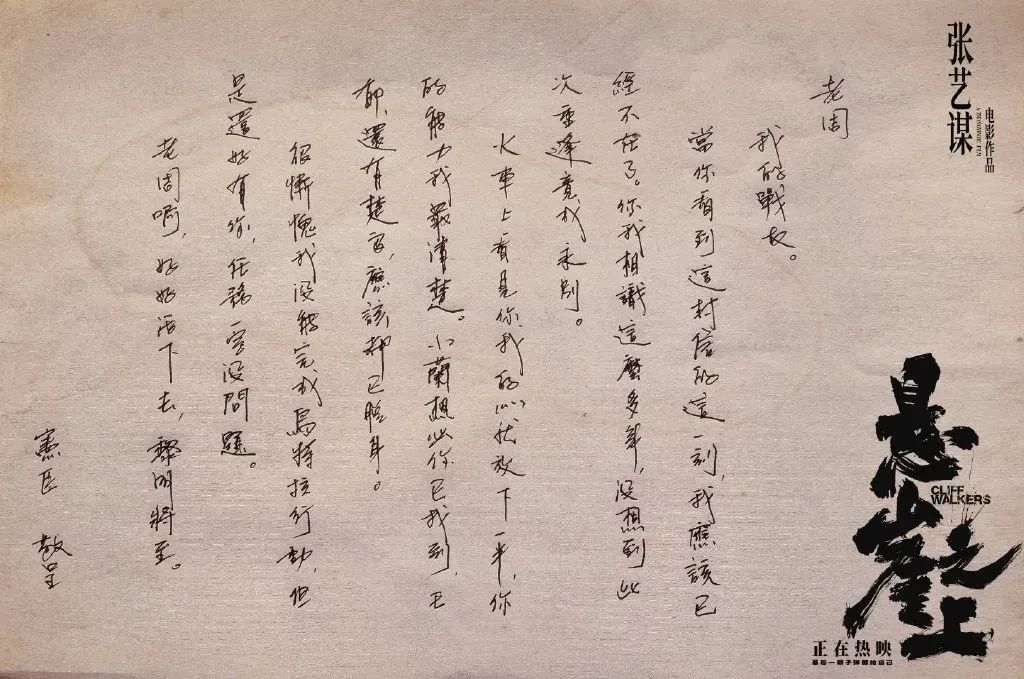 张艺谋
电影作品
老周
我的戰友。
當你看到這封信的這一刻，我應該已
經不在了。你我相識這麼多年，沒想到此
次重逢竟成永別。
火車上看見你，我的心就放下一半，你
的能力我最清楚。小蘭想必你已找到，王
郁，還有楚良，應該都已脫身。
很慚愧我沒能完成烏特拉行動，但
是還好有你，任務一定沒問題。
老周啊，好好活下去，黎明將至。
憲臣 敬呈
悬崖之上
CLIFF
WALKERS
正在热映
最后一颗子弹留给自己